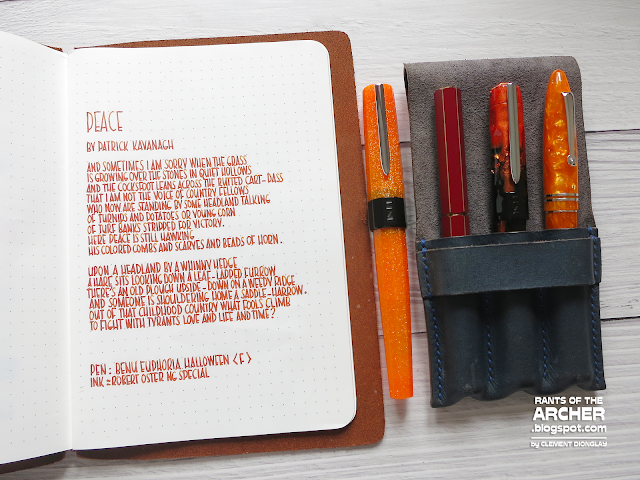 PEACE
BY PATRICK KAVANAGH
AND SOMETIMES I AM SORRY WHEN THE GRASS
IS GROWING OVER THE STONES IN QUIET HOLLOWS
AND THE COCKSFOOT LEANS ACROSS THE RUTTED CART-PASS
THAT I AM NOT THE VOICE OF COUNTRY FELLOWS
WHO NOW ARE STANDING BY SOME HEADLAND TALKING
OF TURNIPS AND POTATOES OR YOUNG CORN
OF TURF BANKS STRIPPED FOR VICTORY.
HERE PEACE IS STILL HAWKING
HIS COLORED COMBS AND SCARVES AND BEADS OF HORN.
UPON A HEADLAND BY A WHINNY HEDGE
A HARE SITS LOOKING DOWN A LEAF-LAPPED FURROW
THERE'S AN OLD PLOUGH UPSIDE-DOWN ON A WEEDY RIDGE
AND SOMEONE IS SHOULDERING HOME A SADDLE-HARROW.
OUT OF THAT CHILDHOOD COUNTRY WHAT FOOLS CLIMB
TO FIGHT WITH TYRANTS LOVE AND LIFE AND TIME?
PEN: BENU EUPHORIA HALLOWEEN <F>
INK = ROBERT OSTER NG SPECIAL
RANTS OF THE
ARCHER
.blogspot.com
by CLEMENT DIONGLAY